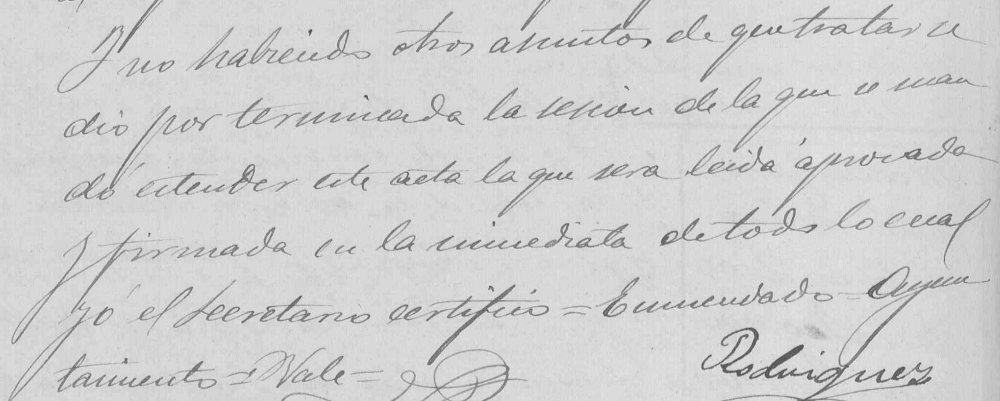 Y no habiendo otros asuntos de que tratar se
dió por terminada la sesion de la que se man
dó estender este acta la que sera leida aprovada
y firmada en la inmediata de todo lo cual
yó el Secretario certifico = Enmendado = Ayun
tamiento = Vale =
Rodriguez